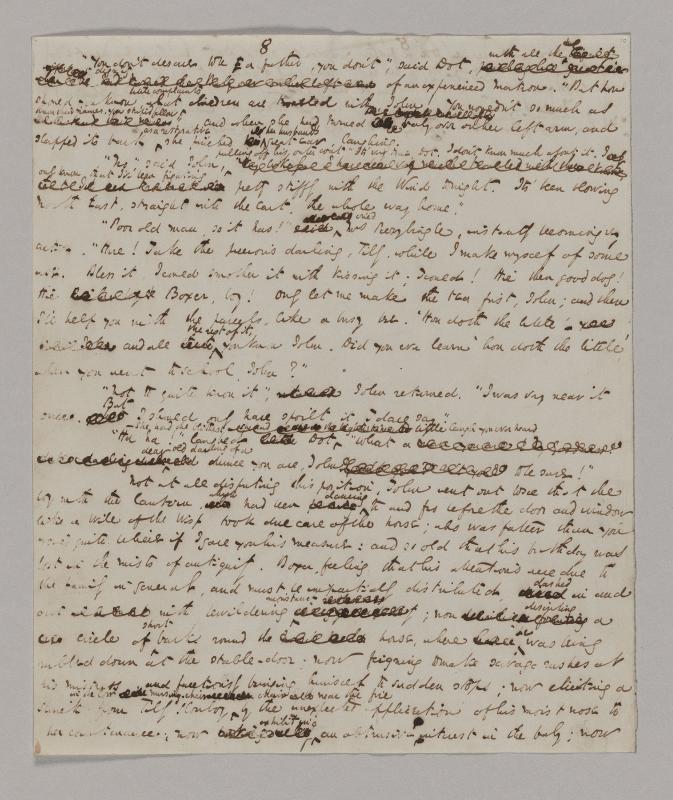 8
"You don't deserve to be a father, you don't", said Dot, with all the
of an experienced matron. "But how
should you know what little complaints children are troubled with, John! You wouldn't so much as
know their names, you stupid fellow". And when she had turned the baby over on her left arm, and
slapped its back as a restorative, she pinched her husband's ear, laughing.
"No," said John, pulling off his outer coat. "It's very true, Dot. I don't know much about it. I
only know that I've been fighting pretty stiffly with the Wind tonight. It's been blowing
north East, straight into the cart, the whole way home."
"Poor old man, so it has!" cried Mrs Peerybingle, instantly becoming very
active. "Here! Take the precious darling, Tilly, while I make myself of some
use. Bless it, I could smother it with kissing it, I could! Hie then, good dog!
Hie Boxer, boy! Only let me make the tea first, John; and then
I'll help you with the parcels, like a busy bee. 'How doth the little'
and all the rest of it, you know John. Did you ever learn 'how doth the little',
when you went to school, John?"
"Not to quite know it", John returned. "I was very near it
once. But I should only have spoilt it, I dare say."
"Ha ha!", laughed Dot. She had the blithest little laugh you ever heard. "What a
dear old darling of a dunce you are, John, to be sure!"
Not at all disputing this position, John went out to see that the
boy with the lantern, which had been dancing to and fro before the door and window
like a Will of the Wisp, took due care of the horse; who was fatter than you
would quite believe if I gave you his measure; and so old that his birthday was
lost in the mists of antiquity. Boxer, feeling that his attentions were due to
the family in general, and must be impartially distributed, dashed in and
out with bewildering inconstancy; now describing a
circle of short barks round the horse, where he was being
rubbed down at the stable-door; now feigning to make savage rushes at
his mistress, and facetiously bringing himself to sudden stops; now eliciting a
shriek from Tilly Slowboy, in the low nursing-chair near the fire, by the unexpected application of his moist nose to
her countenance; now exhibiting an obtrusive interest in the baby; now